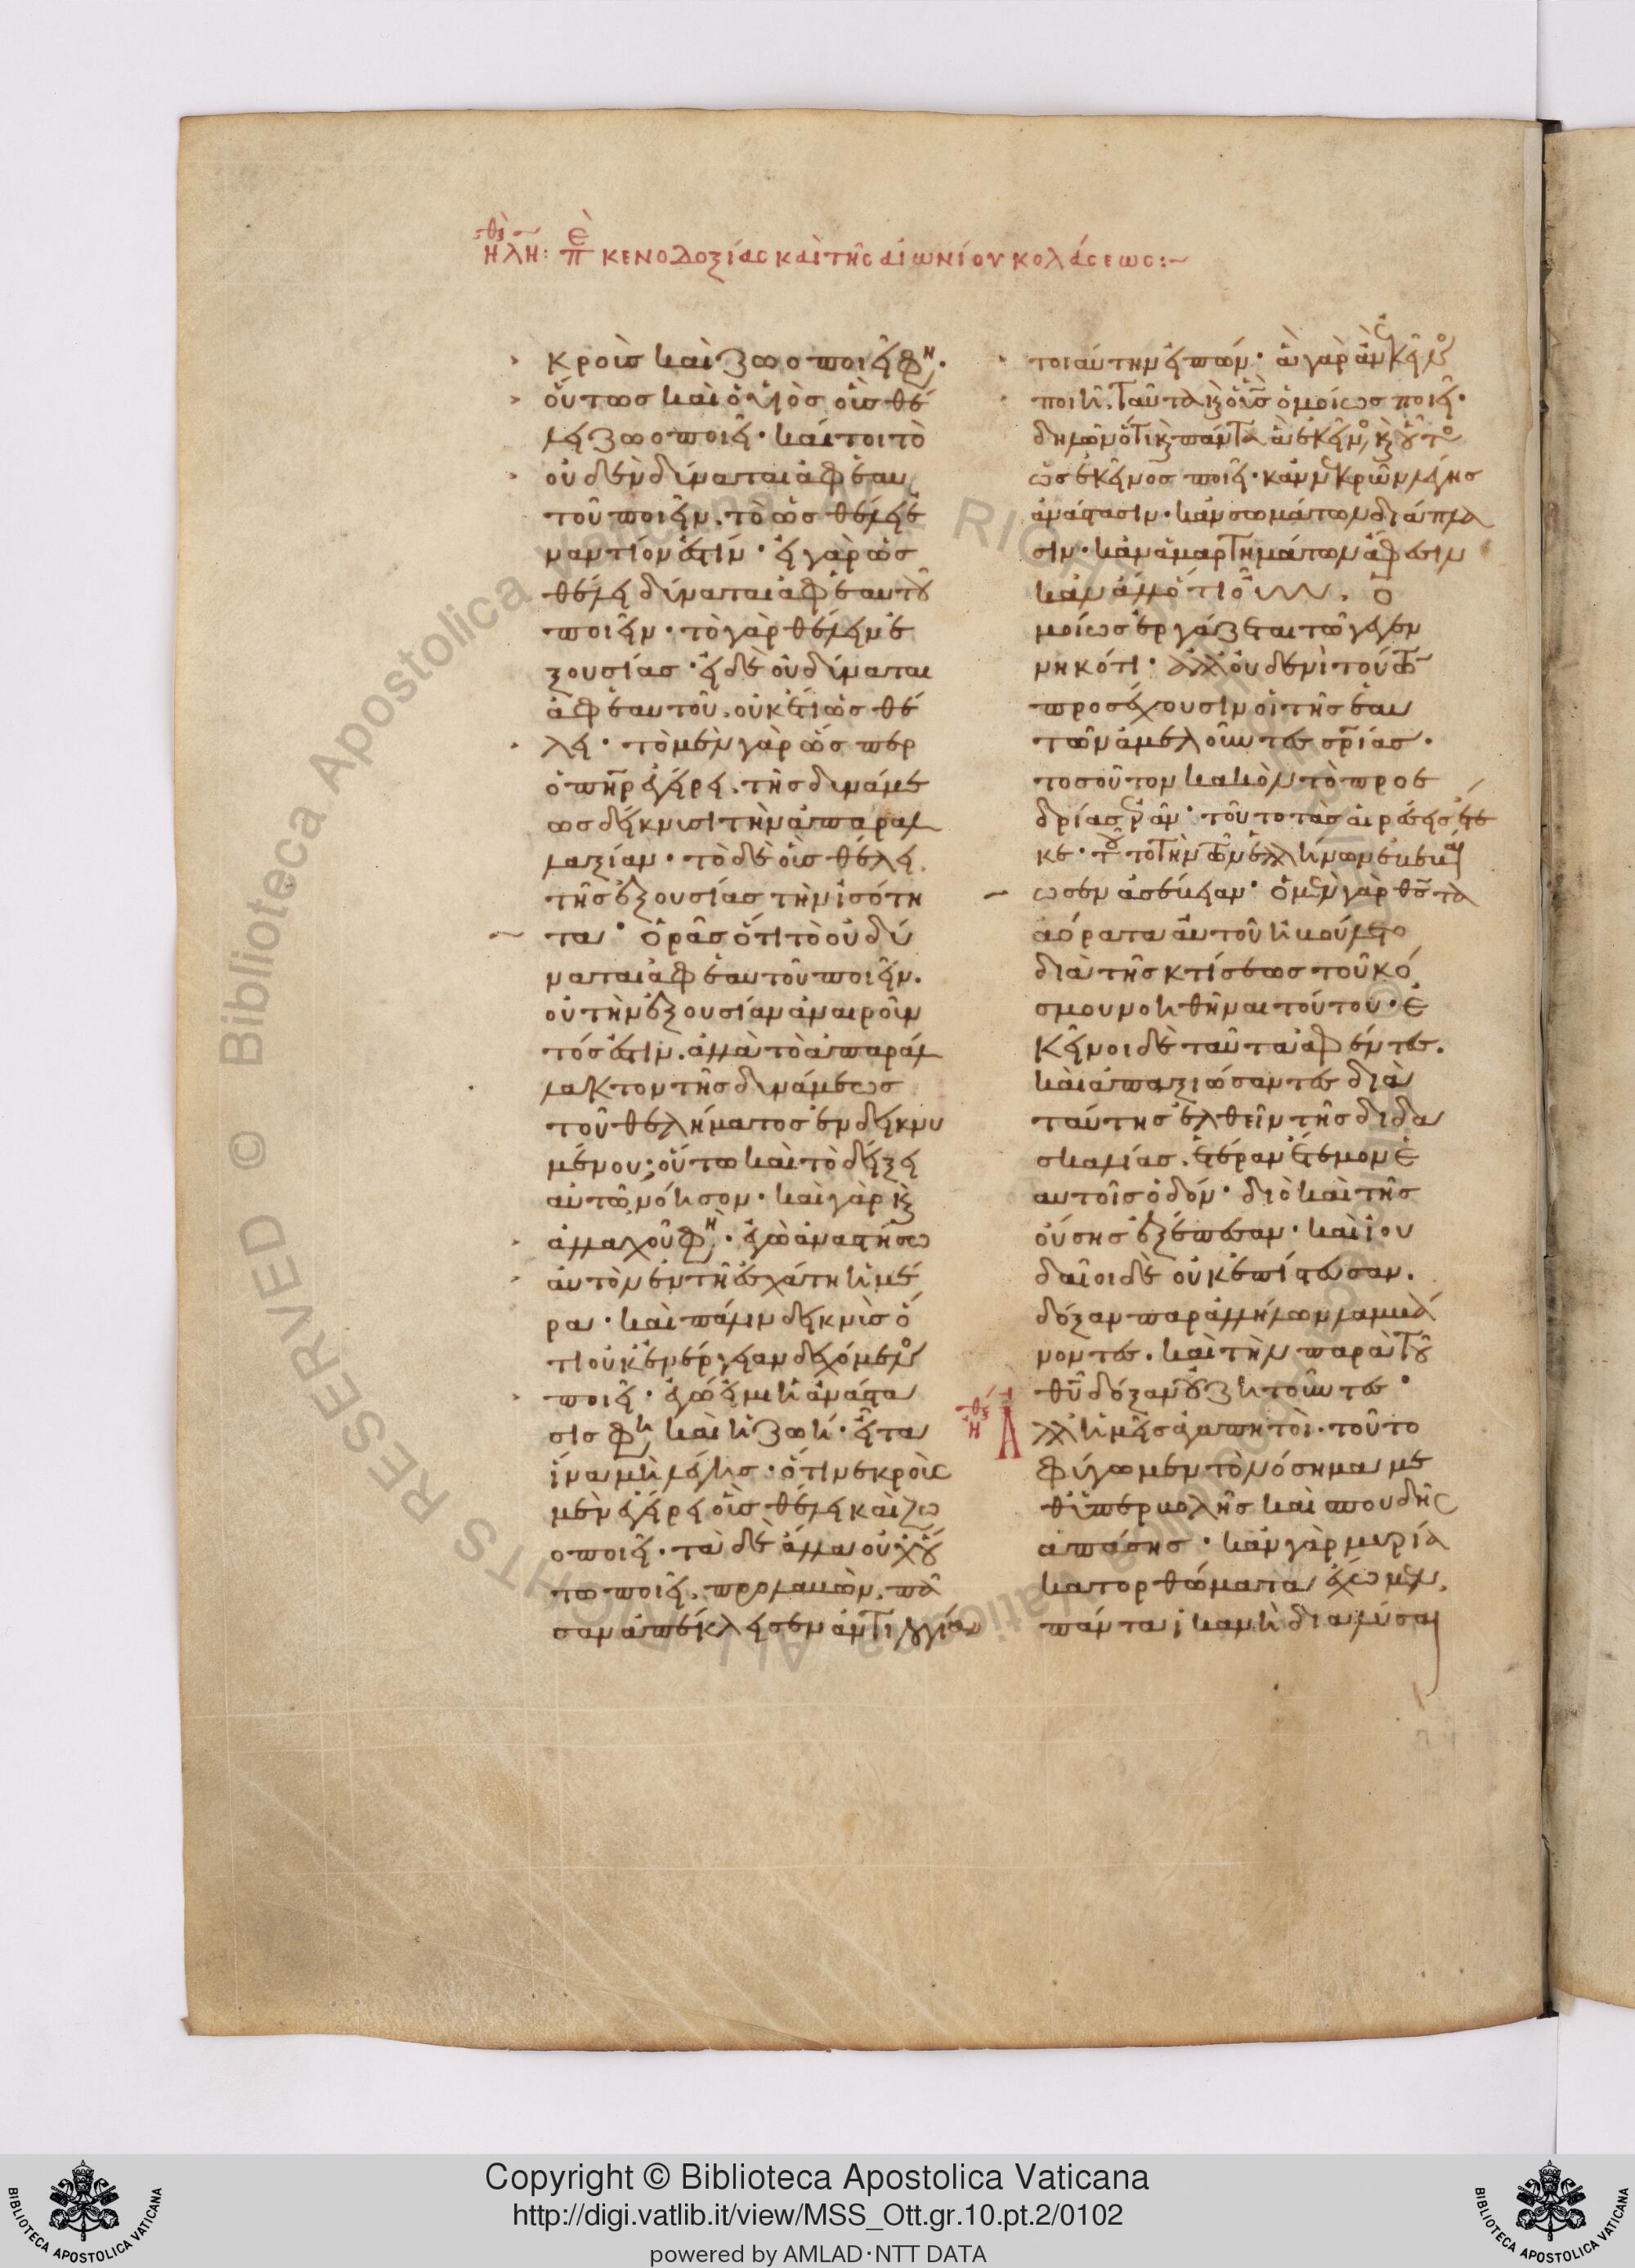 ἠθι
ΗΛΗ: πὲ κενοδοξίας καὶ τῆς αἰωνίου κολάσεως:~
κροὺς καὶ ζωοποιεῖ φη.
οὕτως καὶ ὁ υἱὸς οὓς θέ
λει ζωοποιεῖ· καίτοι τὸ
οὐδὲν δύναται ἀφ' ἑαυ
τοῦ ποιεῖν. τὸ ὡς θέλει ἐ
ναντίον ἐστίν· εἰ γὰρ ὡς
θέλει δύναται ἀφ' ἑαυτοῦ
ποιεῖν· τὸ γὰρ θέλειν ἐ
ξουσίας· εἰ δὲ οὐ δύναται
ἀφ' ἑαυτοῦ. οὐκέτι ὡς θέ
λει· τὸ μὲν γὰρ ὥσπερ
ὁ πηρ ἐγείρει. τῆς δυνάμε
ως δείκνυσι τὴν ἀπαραλ
λαξίαν· τὸ δὲ οὓς θέλει.
τῆς ἐξουσίας τὴν ἰσότη
τα· ὁρᾶς ὅτι τὸ οὐ δύ
ναται ἀφ' ἑαυτοῦ ποιεῖν.
οὐ τὴν ἐξουσίαν ἀναιροῦν
τός ἐστιν. ἀλλὰ τὸ ἀπαράλ
λακτον τῆς δυνάμεως
τοῦ θελήματος ἐνδεικνυ
μένου; οὕτω καὶ τὸ δείξει
αὐτῷ νόησον· καὶ γὰρ κ
ἀλλαχοῦ φη. ἐγὼ ἀναστήσω
αὐτὸν ἐν τῇ ἐσχάτῃ ἡμέ
ρα· καὶ πάλιν δεικνὺς ὅ
τι οὐκ ἐνέργειαν δεχόμενο
ποιεῖ· ἐγώ εἰμι ἡ ἀνάστα
σις φη καὶ ἡ ζωή· εἶτα
ἵνα μὴ λέγῃς· ὅτι νεκροὺς
μὲν ἐγείρει οὓς θέλει καὶ ζω
οποιεῖ· τὰ δὲ ἄλλα οὐχ οὕ
τω ποιεῖ. προλαβὼν. πᾶ
σαν ἀπέκλεισεν ἀντιλογίαν
τοιαύτην εἰπών· ἃ γὰρ ἂν ἐκεῖνο
ποιῇ. ταῦτα κ ὁ υς ὁμοίως ποιεῖ·
δηλῶν ὅτι κ πάντα ἃ ἐκεῖνο, κ οὗτο
ὡς ἐκεῖνος ποιεῖ· κἂν νεκρῶν λέγῃς
ἀνάστασιν· κἂν σωμάτων διάπλα
σιν· κἂν ἁμαρτημάτων ἄφεσιν
κἂν ἄλλο ὁτιοῦν. ὁ
μοίως ἐργάζεται τῷ γεγεν
νηκότι· ἀλλ' οὐδενὶ τούτω
προσέχουσιν οἱ τῆς ἑαυ
τῶν ἀμελοῦντες σριας·
τοσοῦτον κακὸν τὸ προε
δρίας ἐρᾶν· τοῦτο τὰς αἱρέσεις ἔτε
κε· τοῦτο τὴν τῶν ἑλλήνων ἐβεβαί
ωσεν ἀσέβειαν· ὁ μὲν γὰρ θς τὰ
ἀόρατα αὐτοῦ ἠβούλετο
διὰ τῆς κτίσεως τοῦ κό
σμου νοηθῆναι τούτου· ἐ
κεῖνοι δὲ ταῦτα ἀφέντες.
καὶ ἀπαξιώσαντες διὰ
ταύτης ἐλθεῖν τῆς διδα
σκαλίας. ἑτέραν ἔτεμον ἑ
αυτοῖς ὁδόν· διὸ καὶ τῆς
οὔσης ἐξέπεσαν· καὶ ἰου
δαῖοι δὲ οὐκ ἐπίστευσαν.
δόξαν παρ' ἀλλήλων λαμβά
νοντες. καὶ τὴν παρὰ τοῦ
θυ δόξαν οὐ ζητοῦντες·
ἠθι
Ἀλλ' ἡμεῖς ἀγαπητοί. τοῦτο
φύγωμεν τὸ νόσημα με
θ' ὑπερβολῆς καὶ σπουδῆς
ἁπάσης· κἂν γὰρ μυρία
κατορθώματα ἔχωμεν,
πάντα ἱκανὴ διαλῦσαι
Copyright © Biblioteca Apostolica Vaticana
http://digi.vatlib.it/view/MSS_Ott.gr.10.pt.2/0102
powered by AMLAD·NTT DATA